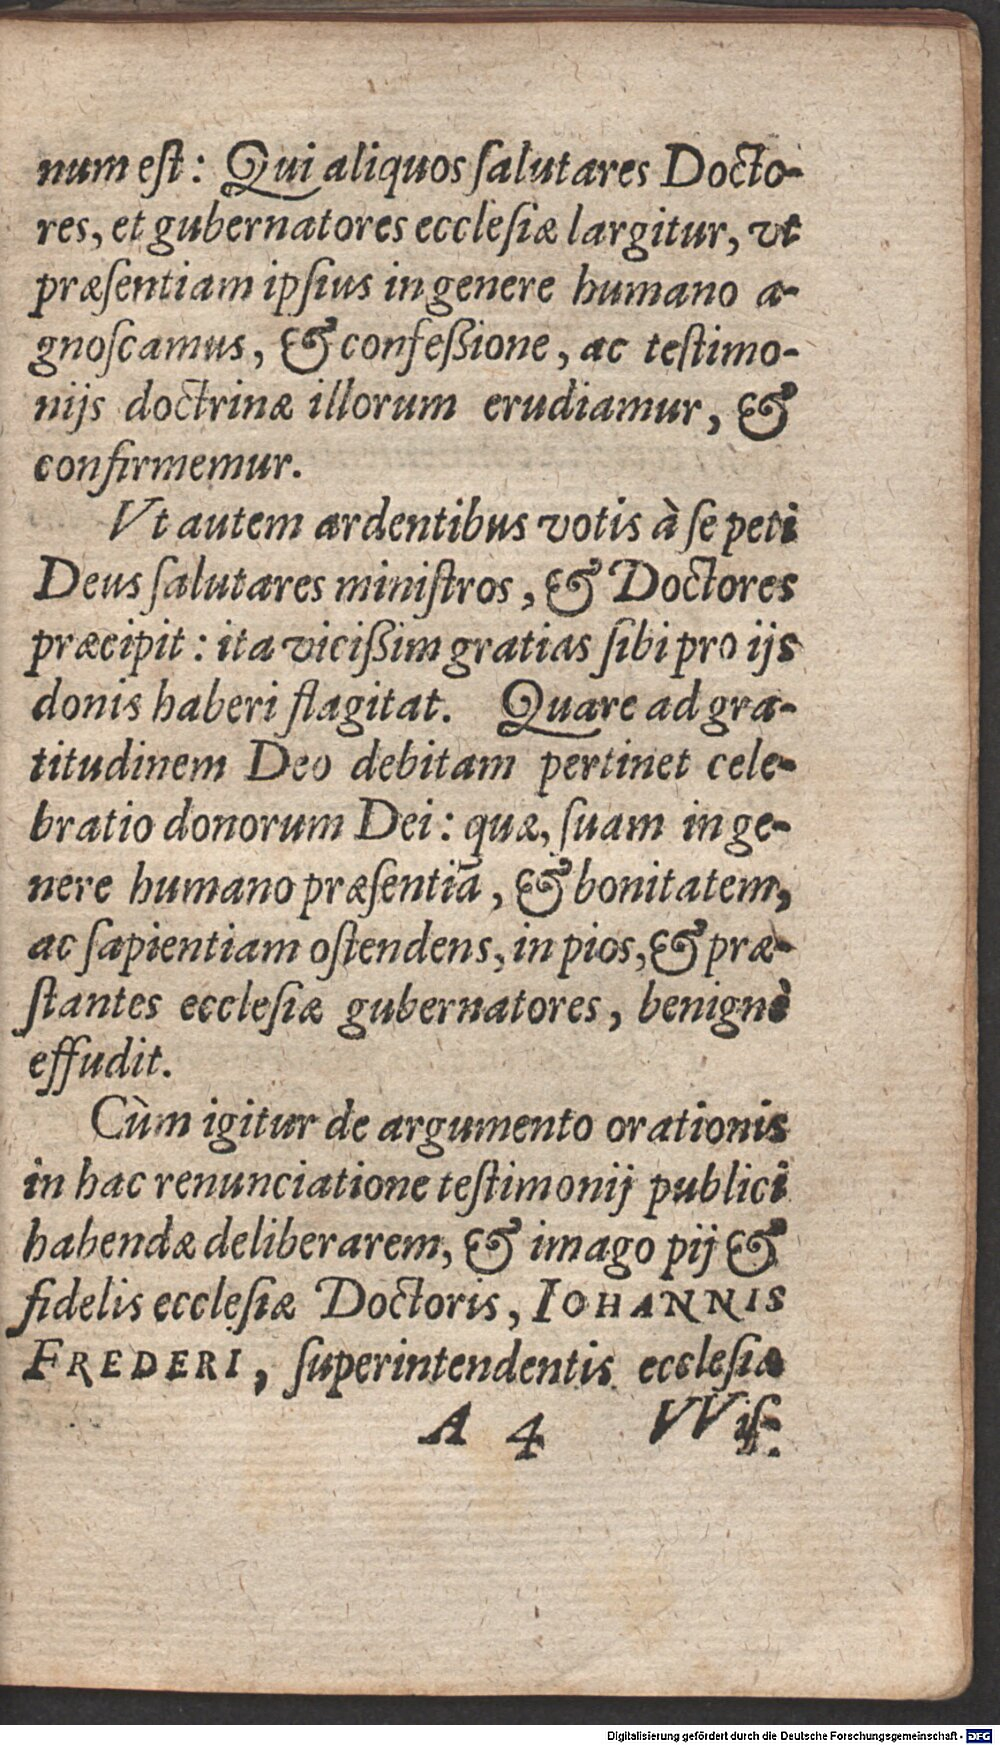 num eſt: Qui aliquos ſalutares Docto-
res, et gubernatores ecclesiæ largitur, vt
præſentiam ipſius in genere humano a-
gnoſcamus, & confeßione, ac teſtimo-
nijs doctrinæ illorum erudiamur, &
confirmemur.
Vt autem ardentibus votis à ſe peti
Deus ſalutares miniſtros, & Doctores
præcipit: ita vicißim gratias ſibi pro ijs
donis haberi flagitat. Quare ad gra-
titudinem Deo debitam pertinet cele-
bratio donorum Dei: quæ, ſuam in ge-
nere humano præſentiā, & bonitatem,
ac ſapientiam oſtendens, in pios, & præ-
ſtantes eccleſiæ gubernatores, benignè
effudit.
Cùm igitur de argumento orationis
in hac renunciatione teſtimonij publici
habendæ deliberarem, & imago pij &
fidelis eccleſiæ Doctoris, IOHANNIS
FREDERI, ſuperintendentis eccleſiæ
A 4 VViſ-
Digitalisierung gefördert durch die Deutsche Forschungsgemeinschaft - DFG